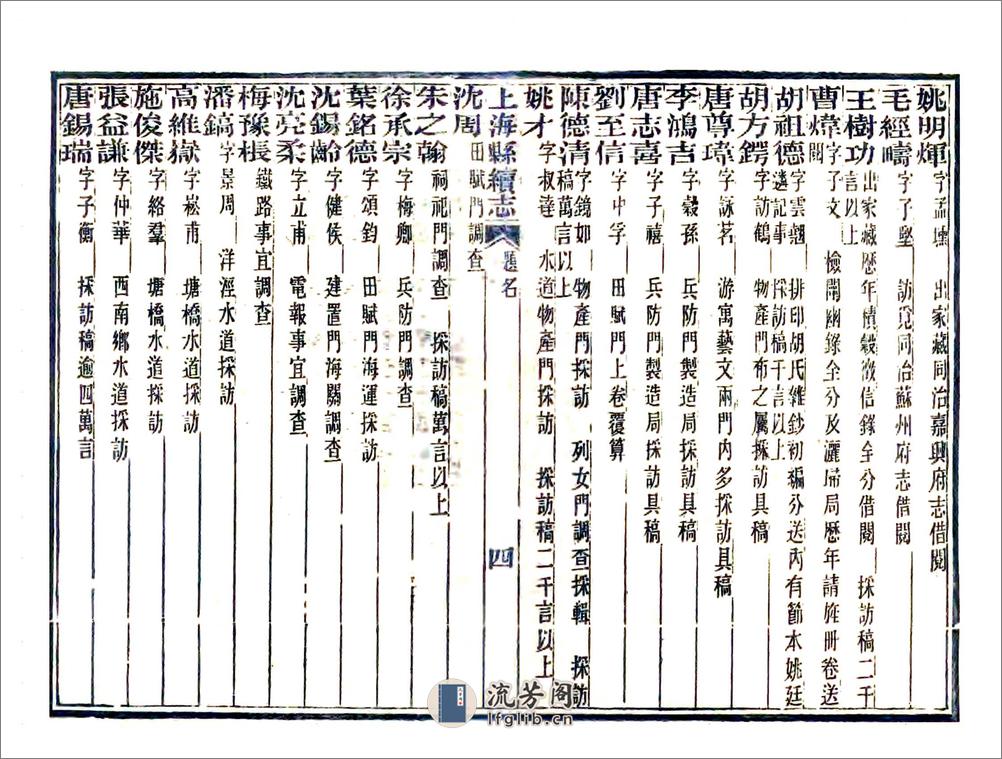 姚明煇 字孟壎 出家藏同治嘉興府志借閱
毛經疇 字子堅 訪覓同治蘇州府志借閱
王樹功 出家藏歷年積穀徵信錄全分借閱 採訪稿二千言以上
曹煒 字子文 檢閘幽錄全分及灑掃局歷年請旌冊卷送閱
胡祖德 字雲翹 排印胡氏雜鈔初編分送內有節本姚廷遴記事 採訪稿千言以上
胡方鍔 字訪鶴 物產門布之屬採訪具稿
唐尊瑋 字詠茗 游寓藝文兩門內多採訪具稿
李鴻吉 字穀孫 兵防門製造局採訪具稿
唐志喜 字子禧 兵防門製造局採訪具稿
劉至信 字中孚 田賦門上卷覆算
陳德清 字鏡如 物產門採訪 列女門調查採輯 採訪稿萬言以上
姚才 字叔達 水道物產門採訪 採訪稿二千言以上
上海縣續志 題名 四
沈周 田賦門調查
朱之翰 祠祀門調查 採訪稿萬言以上
徐承宗 字梅卿 兵防門調查
葉銘德 字頌鈞 田賦門海運採訪
沈錫齡 字健侯 建置門海關調查
沈亮柔 字立甫 電報事宜調查
梅豫棖 鐵路事宜調查
潘鎬 字景周 洋涇水道採訪
高維嶽 字崧甫 塘橋水道採訪
施俊傑 字絡羣 塘橋水道採訪
張益謙 字仲華 西南鄉水道採訪
唐錫瑞 字子衡 採訪稿逾四萬言
流芳閣
lfglib.cn